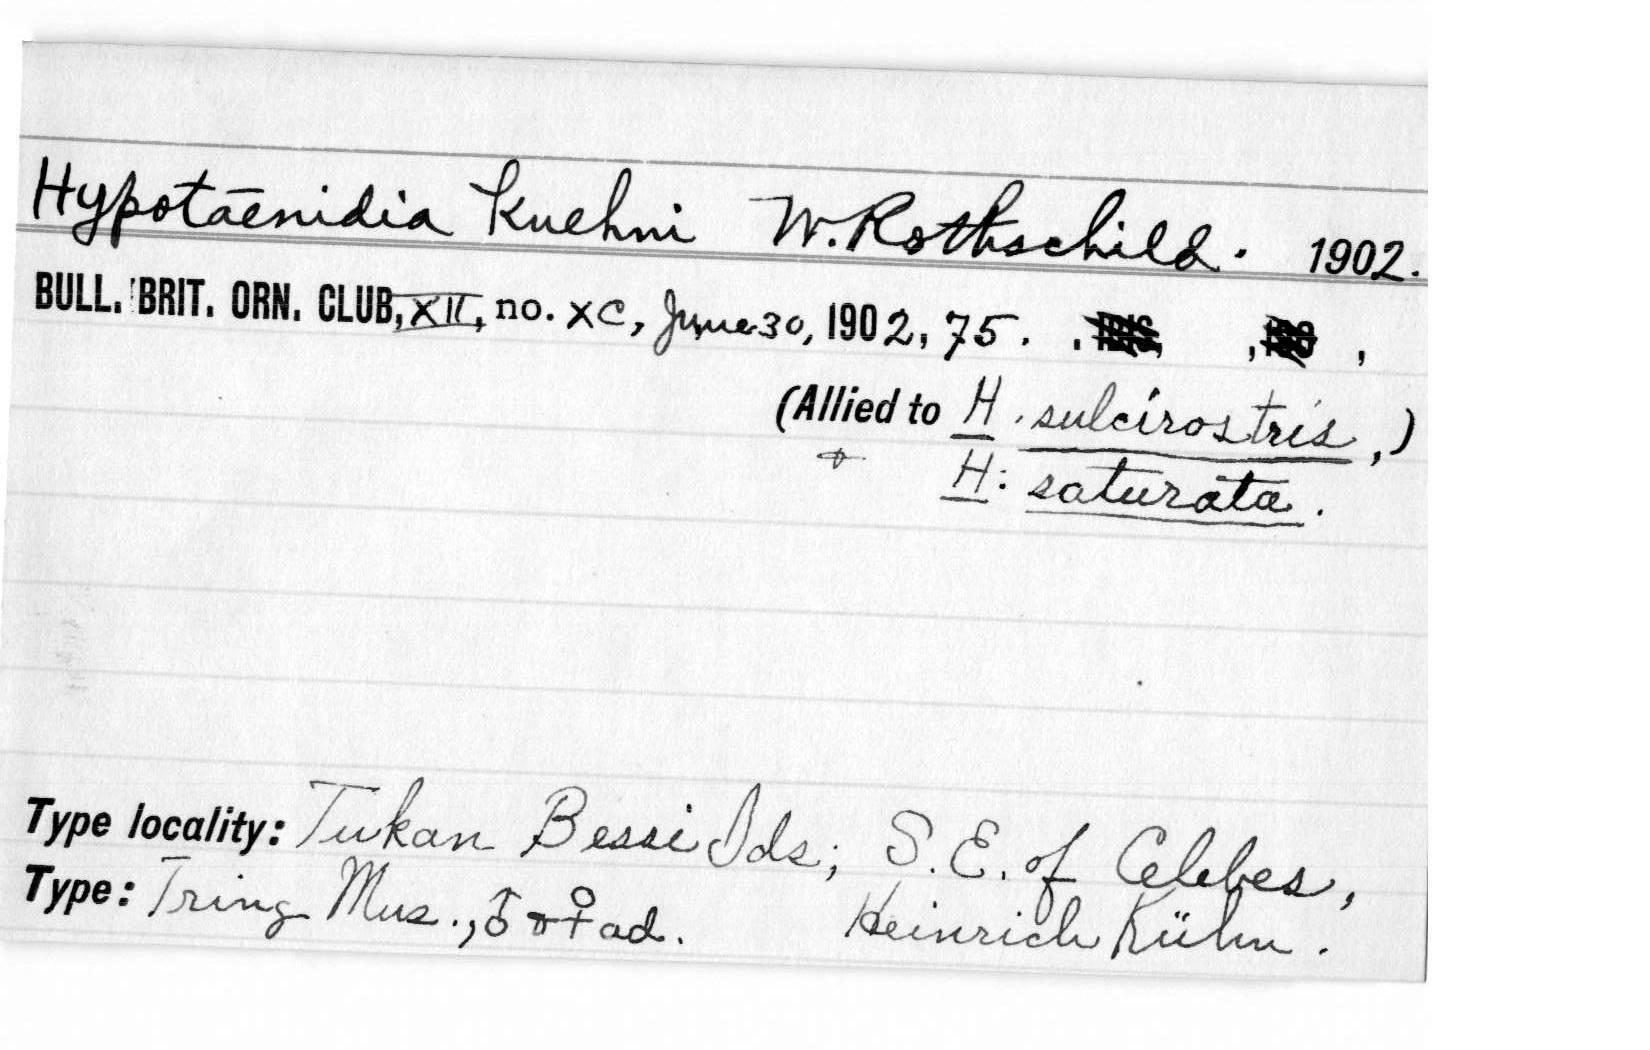 Hypotaenidia kuehni W. Rothschild. 1902.
BULL. BRIT. ORN. CLUB, XII, no. XC, June 30, 1902, 75. , ,
(Allied to H. sulcirostris,)
+ H: saturata.
Type locality: Tukan Bessi Ids; S.E. of Celebes,
Type: Tring Mus., ♂ ♀ ad. Heinrich Kühn.